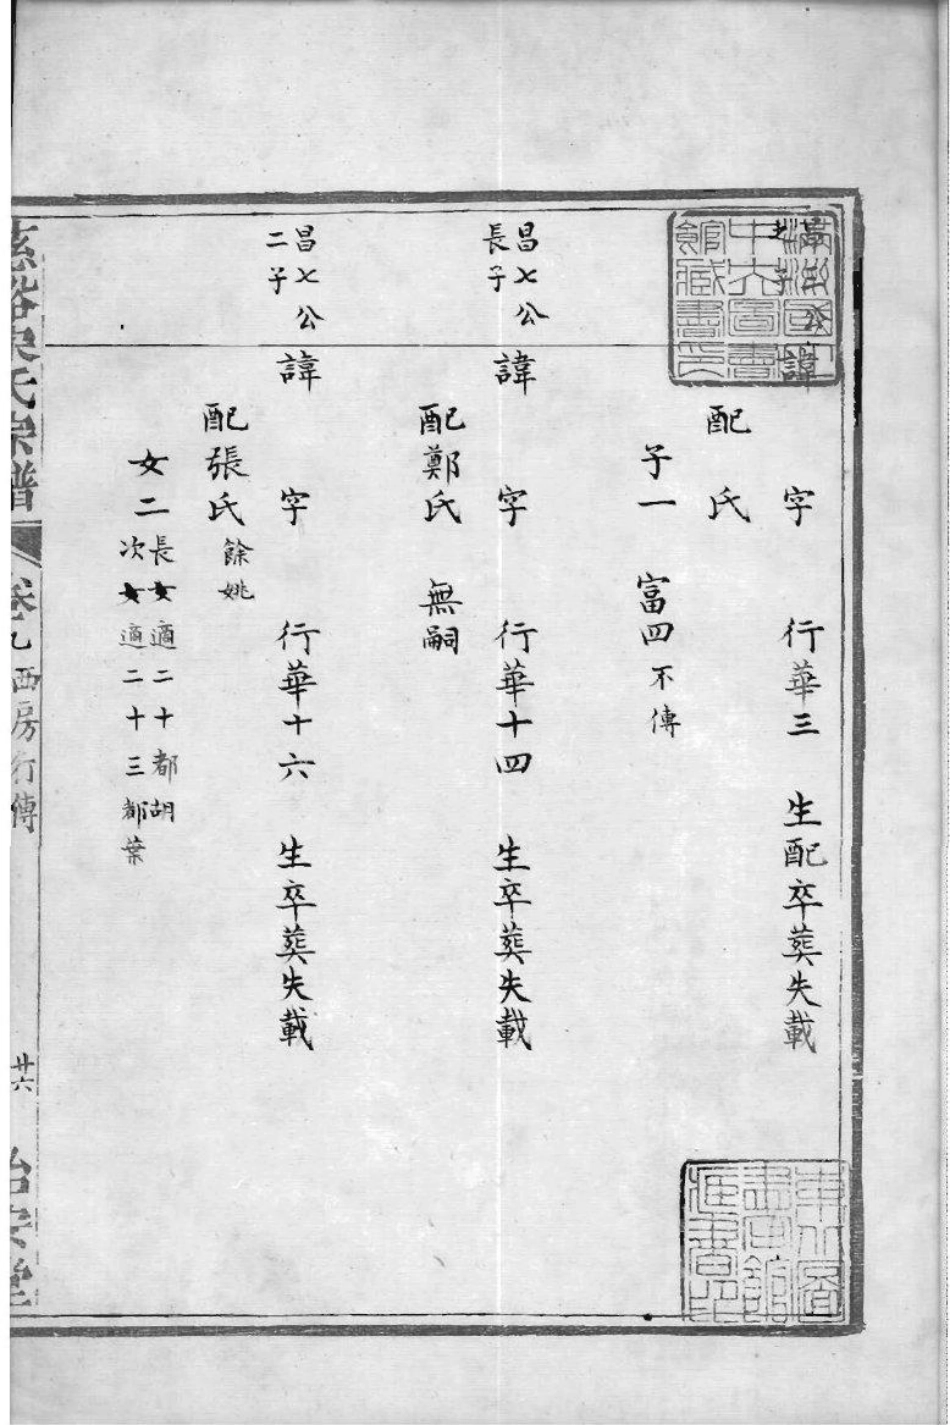 諱
字
行華三
生配卒葬失載
配
氏
子一
富四不傳
昌七公
長子
諱
字
行華十四
生卒葬失載
配鄭氏
無嗣
昌七公
二子
諱
字
行華十六
生卒葬失載
配張氏餘姚
女二
長女適二十都胡
次女適二十三都葉
氏宗譜
卷七西房行傳
廿六